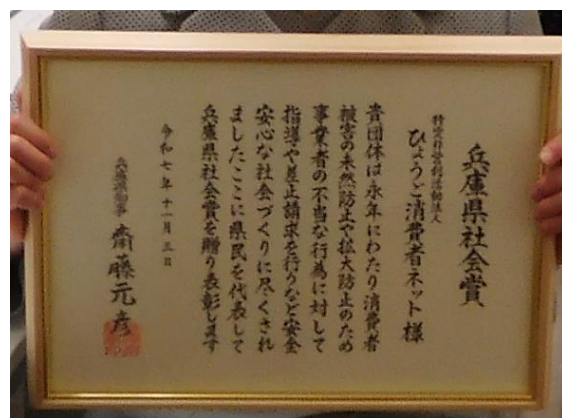 兵庫県社会賞
特定非営利活動法人
ひょうご消費者ネット 様
貴団体は永年にわたり消費者
被害の未然防止や拡大防止のため
事業者の不当な行為に対して
指導や差止請求を行うなど安全
安心な社会づくりに尽くされ
ましたここに県民を代表して
兵庫県社会賞を贈り表彰します
令和七年十一月三日
兵庫県知事 齋藤元彦